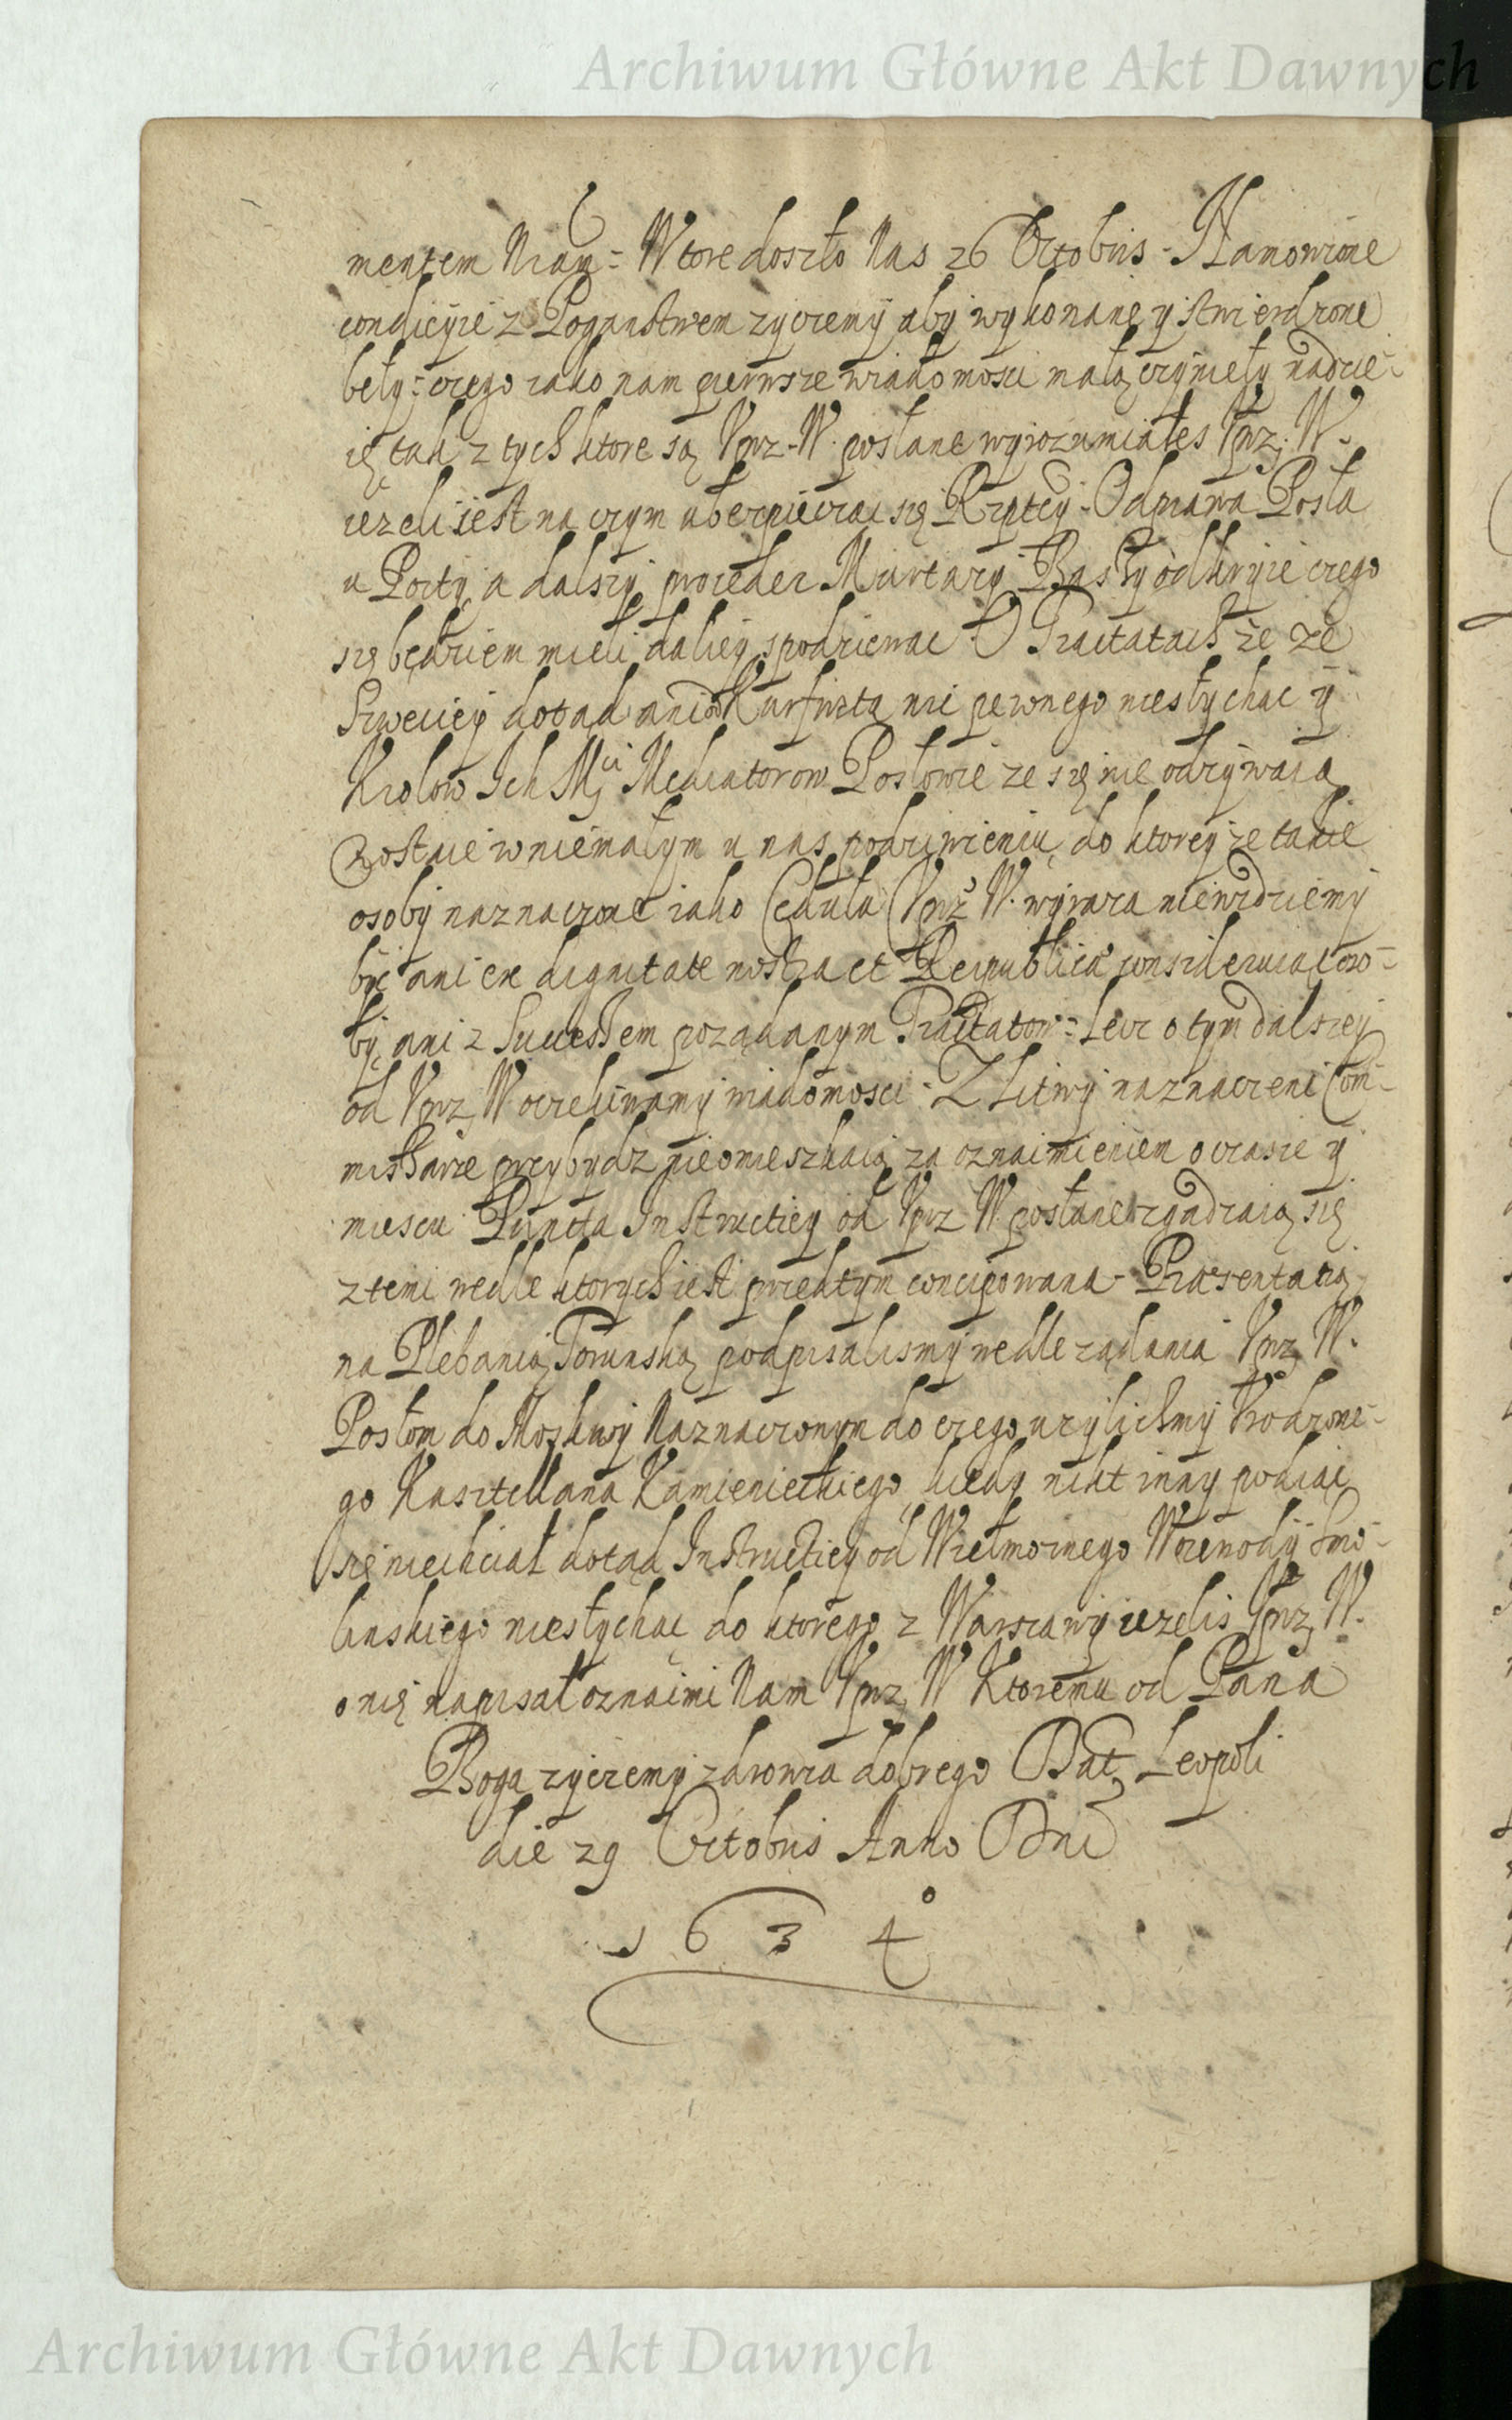 Archiwum Główne Akt Dawnych
mentem Nrąm: Wtore doszło Nas 26 Octobris. Stanowione
condicyie z Poganstwem zyczemy aby wykonane y stwierdzone
beły: czego iako nam pierwsze wiadomosci małą czyniеły nadzie-
ię tak z tych ktore są Uprz. W. posłane wyrozumiałes Uprz. W.
iezeli iest na czym ubezpieczac się Rzptey. Odprawa Posła
u Porty a dalszy proceder Murtazy Baszy odkryie czego
się będziem mieli daliey spodziewac. O Tractatach że ze
Szweciey dotąd ani od Kurfirsta nic pewnego niesłychac y
Krolow Ich Mci Mediatorow Posłowie ze się nie odzywaią
zostaie w niemałym u nas podziwieniu, do ktorey ze takie
osoby naznaczone iako Cedula Uprz W. wyraza niewidziemy
byc ani ex dignitate nostra et Reipublicae consideruiąc oso-
by, ani z Successem pożądanym Tractatow: Lecz o tym dalszey
od Uprz W oczekiwamy wiadomosci. Z Litwy naznaczeni Com-
missarze przybydz nieomieszkaią za oznaimieniem o czasie y
miescu. Puncta Instructiey od Uprz W. posłane zgadzaią się
z temi wedle ktorych iest przedtym concipowana. Praesentatią
na Plebanią Torunską podpisalismy wedle ządania Uprz W.
Posłom do Moskwy Naznaczonym do czego uzylichmy Urodzone-
go Kasztellana Kamienieckiego, kiedy nikt inny podiąc
się niechciał dotąd Instructiey od Wielmoznego Woiewody Smo-
linskiego niesłychac do ktorego z Warszawy iezelis Uprz W.
o nię napisał oznaimi Nam Uprz W Ktoremu od Pana
Boga zyczemy zdrowia dobrego Dat Leopoli
die 29 Octobris Anno Dni
1634°
Archiwum Główne Akt Dawnych